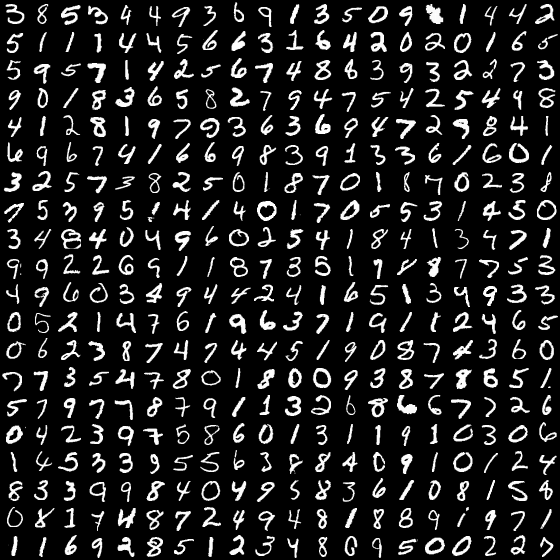 3 8 5 3 4 4 9 3 6 9 1 3 5 0 9 1 4 4 2
5 1 1 1 4 4 5 6 6 3 1 6 4 2 0 2 0 1 6 5
5 9 5 7 1 4 2 5 6 7 4 8 8 3 9 3 2 2 7 3
9 0 1 8 3 6 5 8 2 7 9 4 7 5 4 2 5 4 9 8
4 1 2 8 1 9 7 9 3 6 3 6 9 4 7 2 9 8 4 1
6 9 6 7 4 1 6 6 9 8 3 9 1 3 3 6 1 6 0 1
3 2 5 7 3 8 2 5 0 1 8 7 0 1 8 7 0 2 3 8
7 5 3 9 5 1 4 1 4 0 1 7 0 5 5 3 1 4 5 0
3 4 8 4 0 4 9 6 0 2 5 4 1 8 4 1 3 4 7 1
9 9 2 2 6 9 1 1 8 7 3 5 1 9 8 8 7 7 5 3
4 9 6 0 3 4 9 4 4 2 4 1 6 5 1 3 4 9 3 3
0 5 2 1 4 7 6 1 9 6 3 7 1 9 1 1 2 4 6 5
0 6 2 3 8 7 4 7 4 4 5 1 9 0 8 7 4 3 6 0
7 7 3 5 4 7 8 0 1 8 0 0 9 3 8 7 8 6 5 1
5 7 9 7 7 8 7 9 1 1 3 2 6 8 6 6 7 7 2 6
0 4 2 3 9 7 5 8 6 0 1 3 1 1 9 1 0 3 0 6
1 4 5 3 3 9 5 5 6 3 8 8 4 0 9 1 0 1 2 4
8 3 3 9 9 8 4 0 4 9 5 8 3 6 1 0 8 1 5 4
0 8 1 7 4 8 7 2 4 9 4 8 1 8 8 9 1 9 7 1
1 1 6 9 2 8 5 1 2 3 4 8 0 9 5 0 0 2 2 7